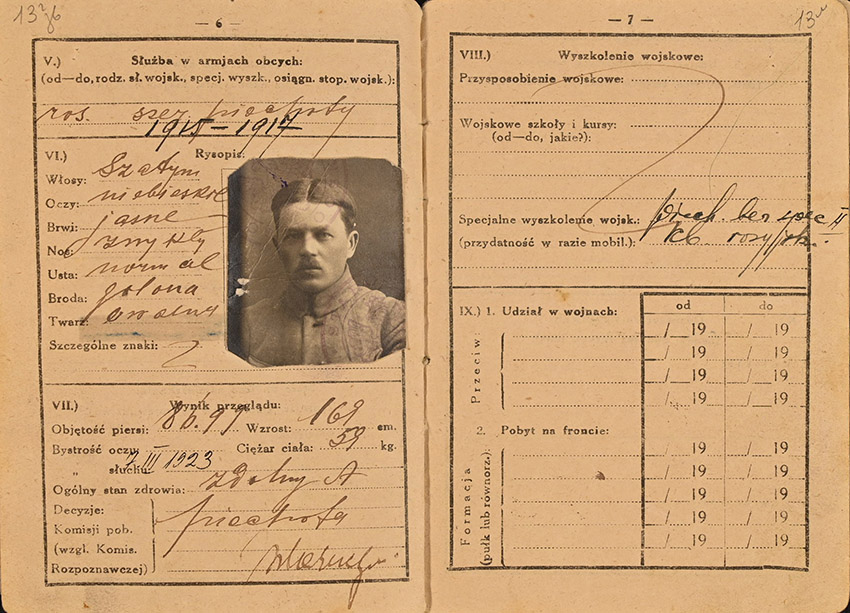 — 6 —
V.) Służba w armjach obcych:
(od—do, rodz. sł. wojsk., specj. wyszk., osiągn. stop. wojsk.):
ros. szer. piechoty
1915 – 1917
VI.) Rysopis:
Włosy: Szatyn
Oczy: niebieskie
Brwi: jasne
Nos: zwykły
Usta: normal
Broda: golona
Twarz: owalna
Szczególne znaki:
VII.) Wynik przeglądu:
Objętość piersi: 86.91 Wzrost: 169 cm.
Bystrość oczu: Ciężar ciała: 59 kg.
„ słuchu: III 1923
Ogólny stan zdrowia: zdolny A
Decyzje: piechota
Komisji pob.
(wzgl. Komis.
Rozpoznawczej)
— 7 —
VIII.) Wyszkolenie wojskowe:
Przysposobienie wojskowe:
Wojskowe szkoły i kursy:
(od—do, jakie?):
Specjalne wyszkolenie wojsk.: piech. bez spec
(przydatność w razie mobil.): kb.
IX.) 1. Udział w wojnach: od do
Przeciw:
/ 19 / 19
/ 19 / 19
/ 19 / 19
/ 19 / 19
2. Pobyt na froncie:
Formacja
(pułk lub równorz.):
/ 19 / 19
/ 19 / 19
/ 19 / 19
/ 19 / 19
/ 19 / 19